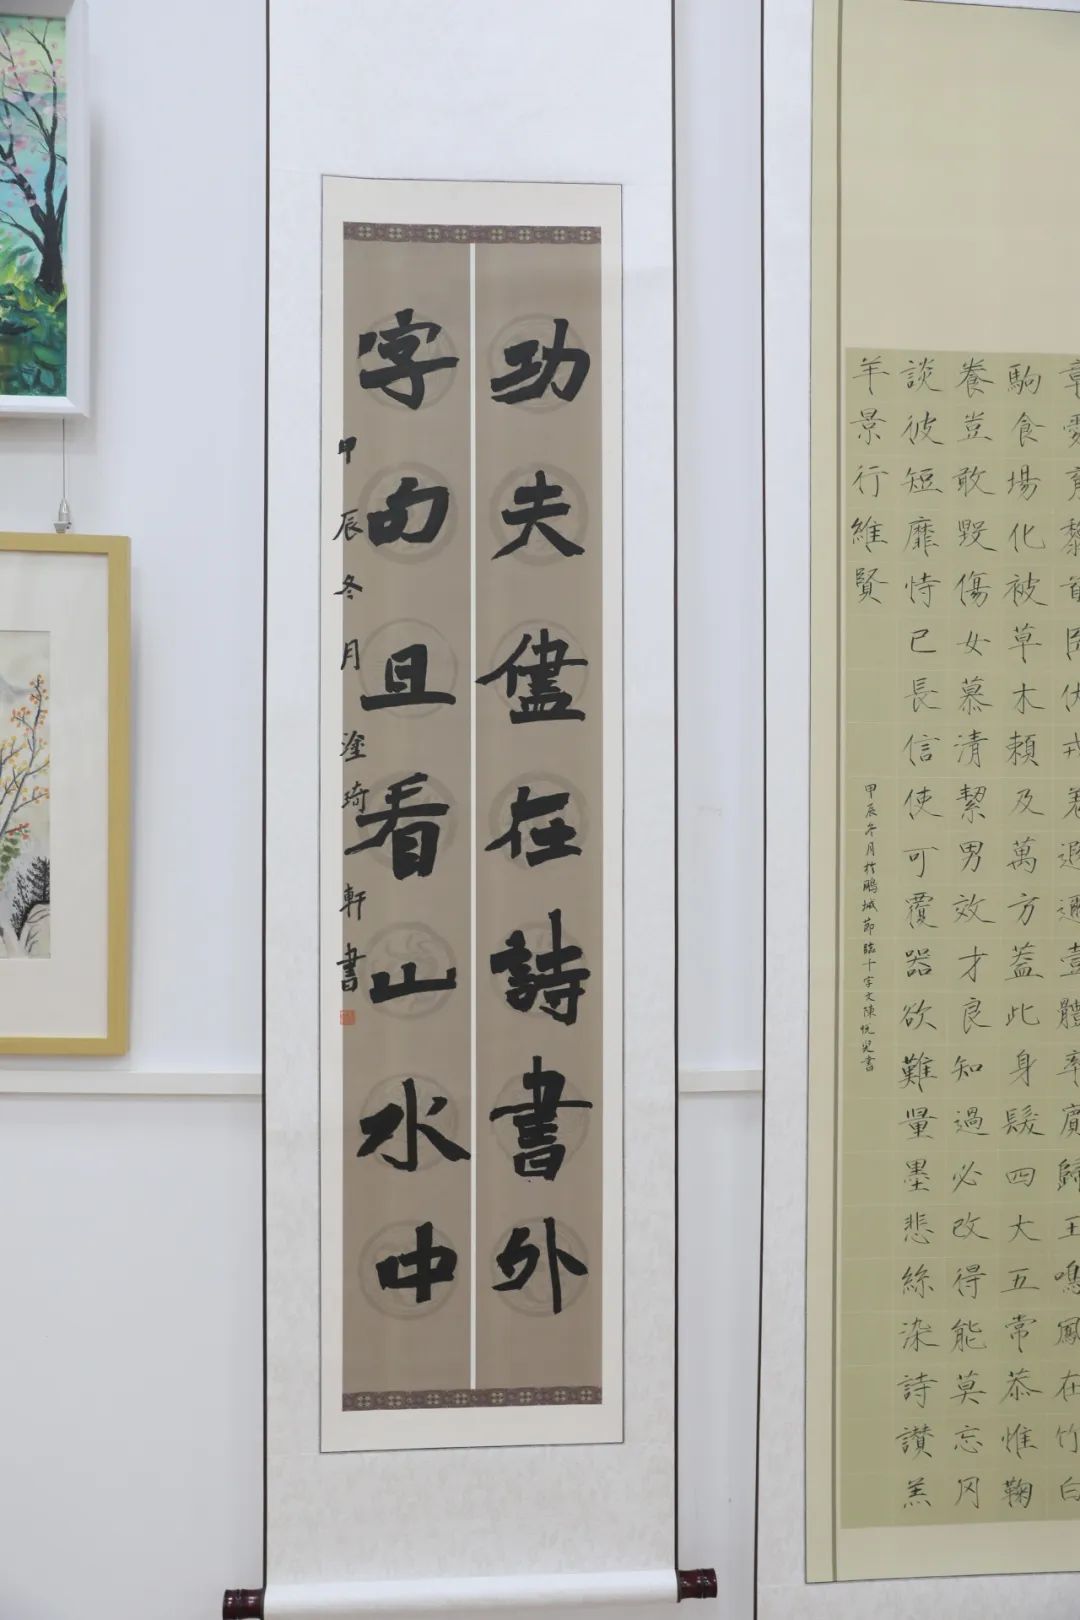 功夫儘在詩書外
字句且看山水中
甲辰冬月塗琦軒書
章愛育黎首臣伏戎羌遐邇壹體率賓歸王鳴鳳在竹白
駒食場化被草木賴及萬方蓋此身髮四大五常恭惟鞠
養豈敢毀傷女慕清絜男效才良知過必改得能莫忘罔
談彼短靡恃已長信使可覆器欲難量墨悲絲染詩讚羔
羊景行維賢
甲辰冬月於鵬城節臨千字文陳悅兒書